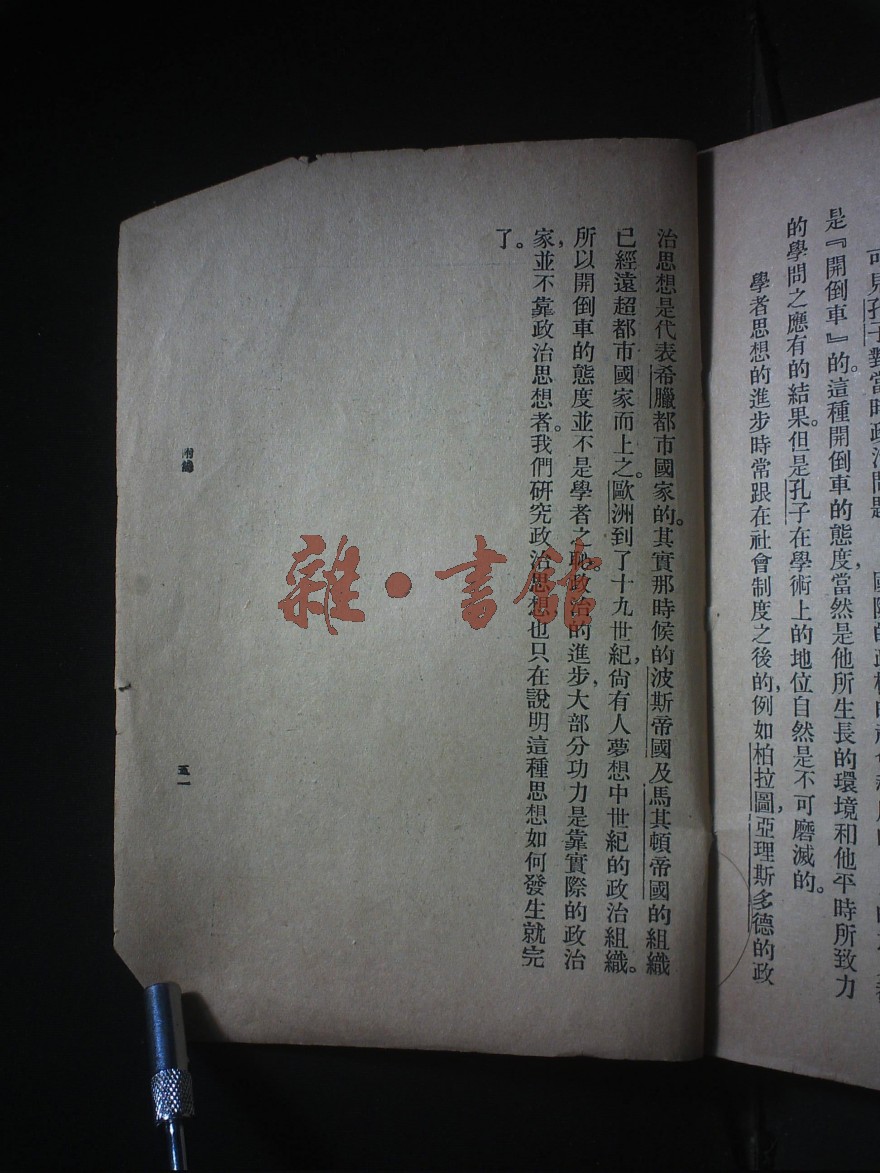 可見孔子對當時政治問題
是『開倒車』的。這種開倒車的態度，當然是他所生長的環境和他平時所致力
的學問之應有的結果。但是孔子在學術上的地位自然是不可磨滅的。
學者思想的進步時常跟在社會制度之後的，例如柏拉圖，亞理斯多德的政
治思想是代表希臘都市國家的。其實那時候的波斯帝國及馬其頓帝國的組織
已經遠超都市國家而上之。歐洲到了十九世紀，尚有人夢想中世紀的政治組織。
所以開倒車的態度並不是學者之恥。政治的進步，大部分功力是靠實際的政治
家，並不靠政治思想者。我們研究政治思想也只在說明這種思想如何發生就完
了。
附錄
五一
雜·書館